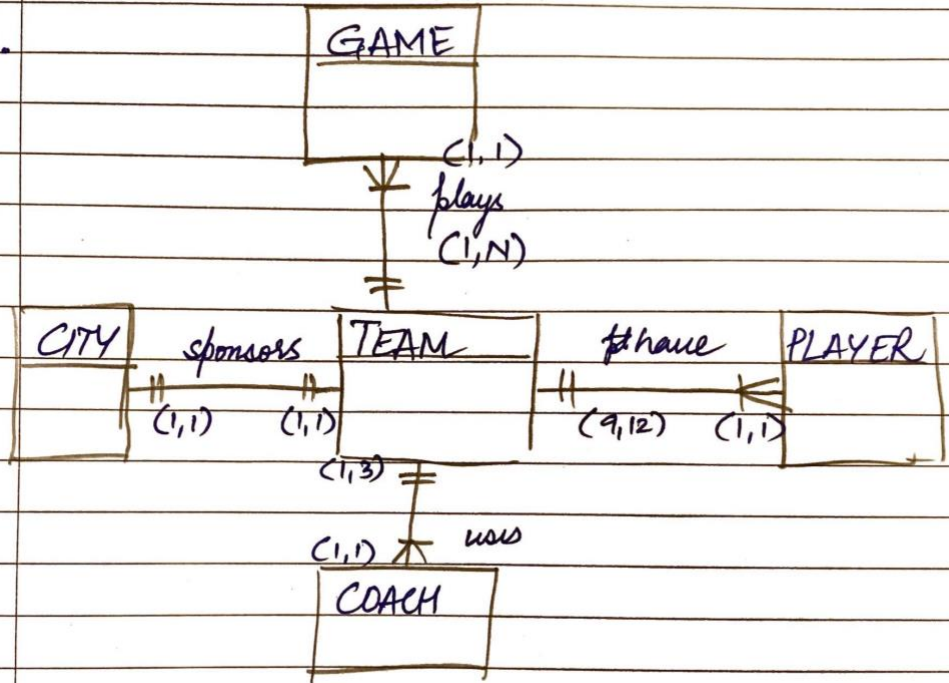 GAME
(1,1)
plays
(1,N)
CITY
sponsors
TEAM
have
PLAYER
(1,1)
(1,1)
(9,12)
(1,1)
(1,3)
(1,1)
uses
COACH